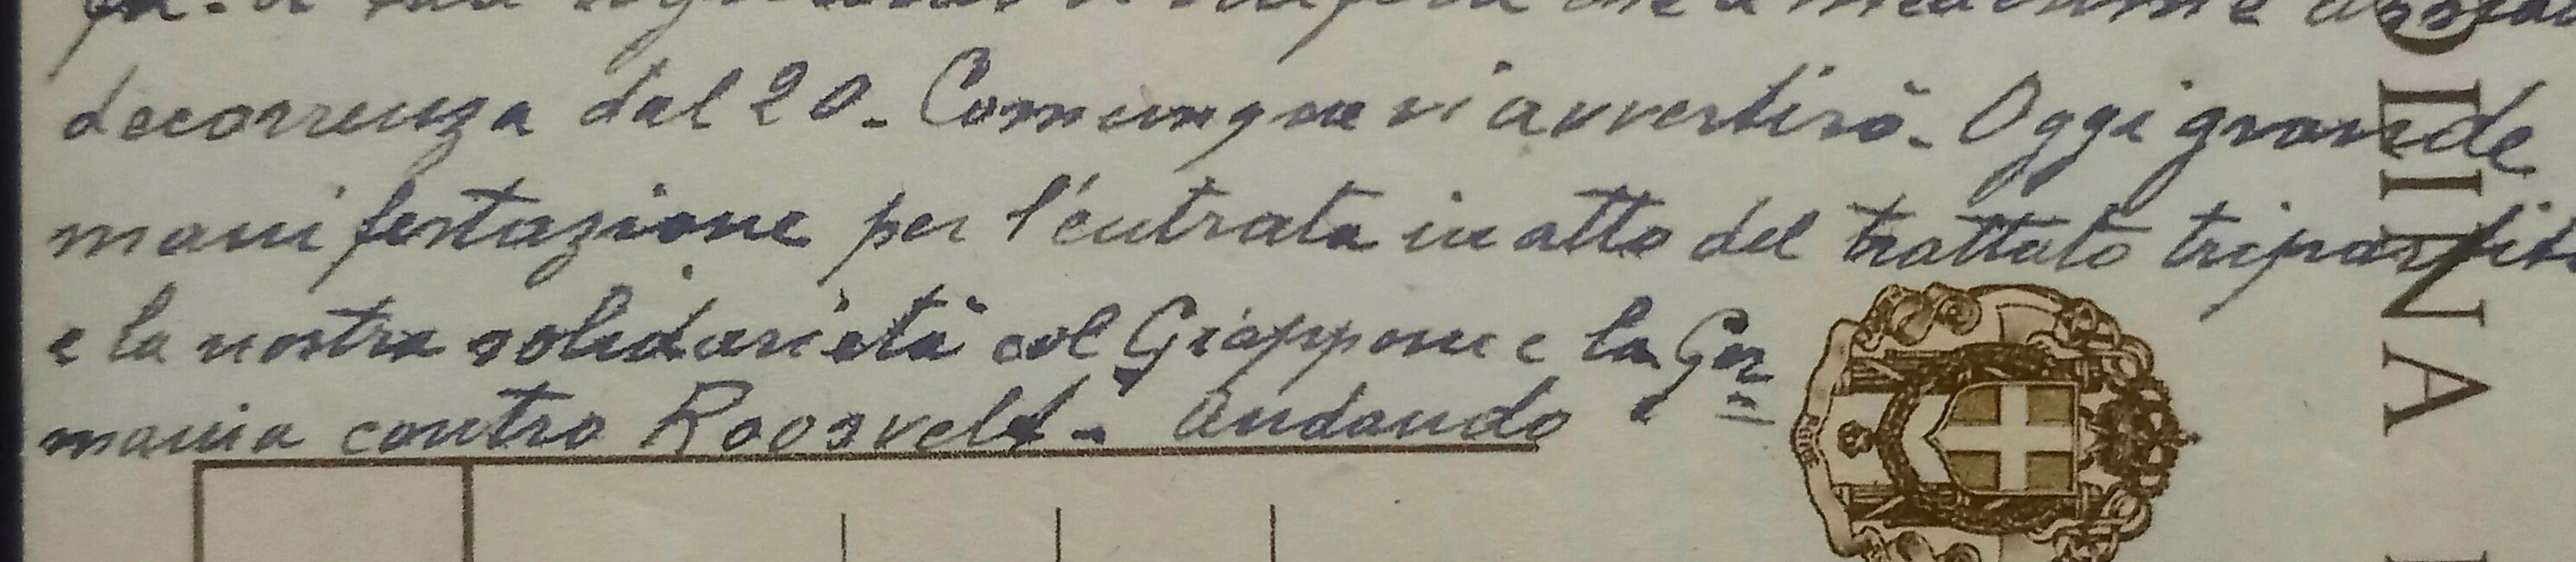 decorrenza dal 20 - Comunque vi avvertirò - Oggi grande
manifestazione per l'entrata in atto del trattato tripartito
e la nostra solidarietà col Giappone e la Ger
mania contro Roosvelt - Andando